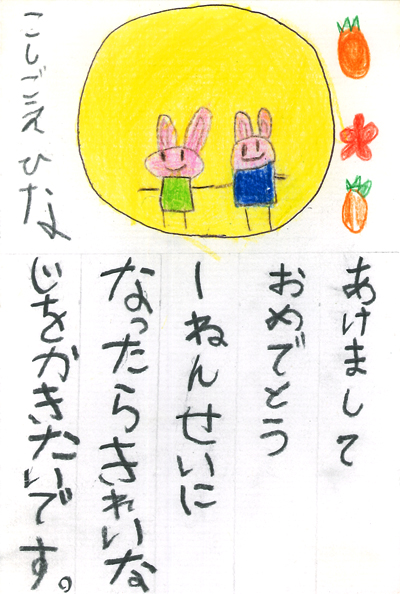 あけまして
おめでとう
一ねんせいに
なったらきれいな
じをかきたいです。
こしごえひな